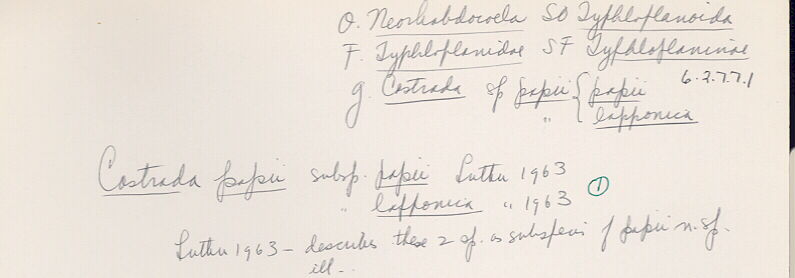 O. Neorhabdocoela SO Typhloplanoida
F. Typhloplanidae SF Typhloplaninae
g. Castrada sp papii { papii 6.2.7.7.1
" lapponica
Castrada papii subsp. papii Luther 1963
" lapponica " 1963 ①
Luther 1963 – describes these 2 sp. as subspecies of papii n. sp.
ill –